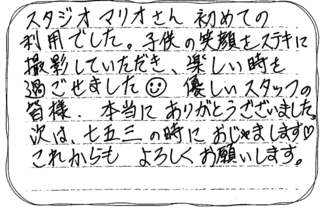 スタジオマリオさん 初めての
利用でした。子供の笑顔をステキに
撮影していただき、楽しい時を
過ごせました☺ 優しいスタッフの
皆様、本当にありがとうございました。
次は、七五三の時におじゃまします♡
これからも よろしくお願いします。